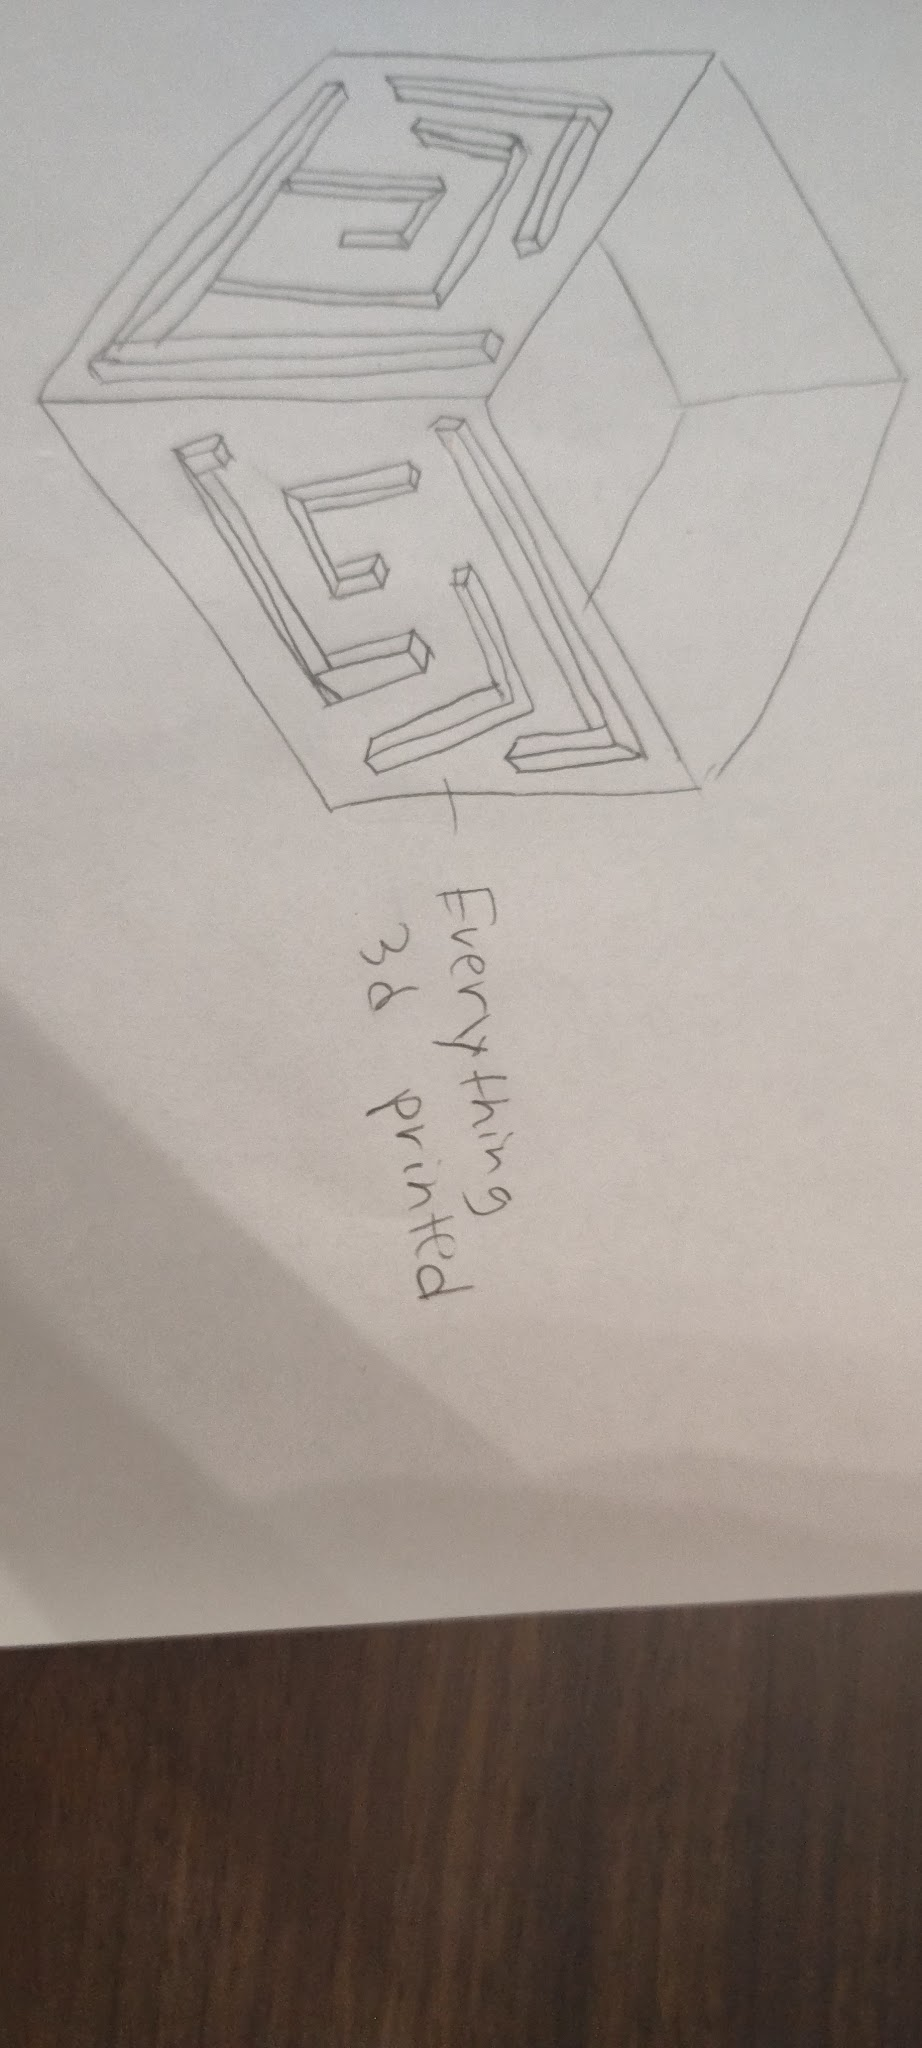 Everything
3d printed